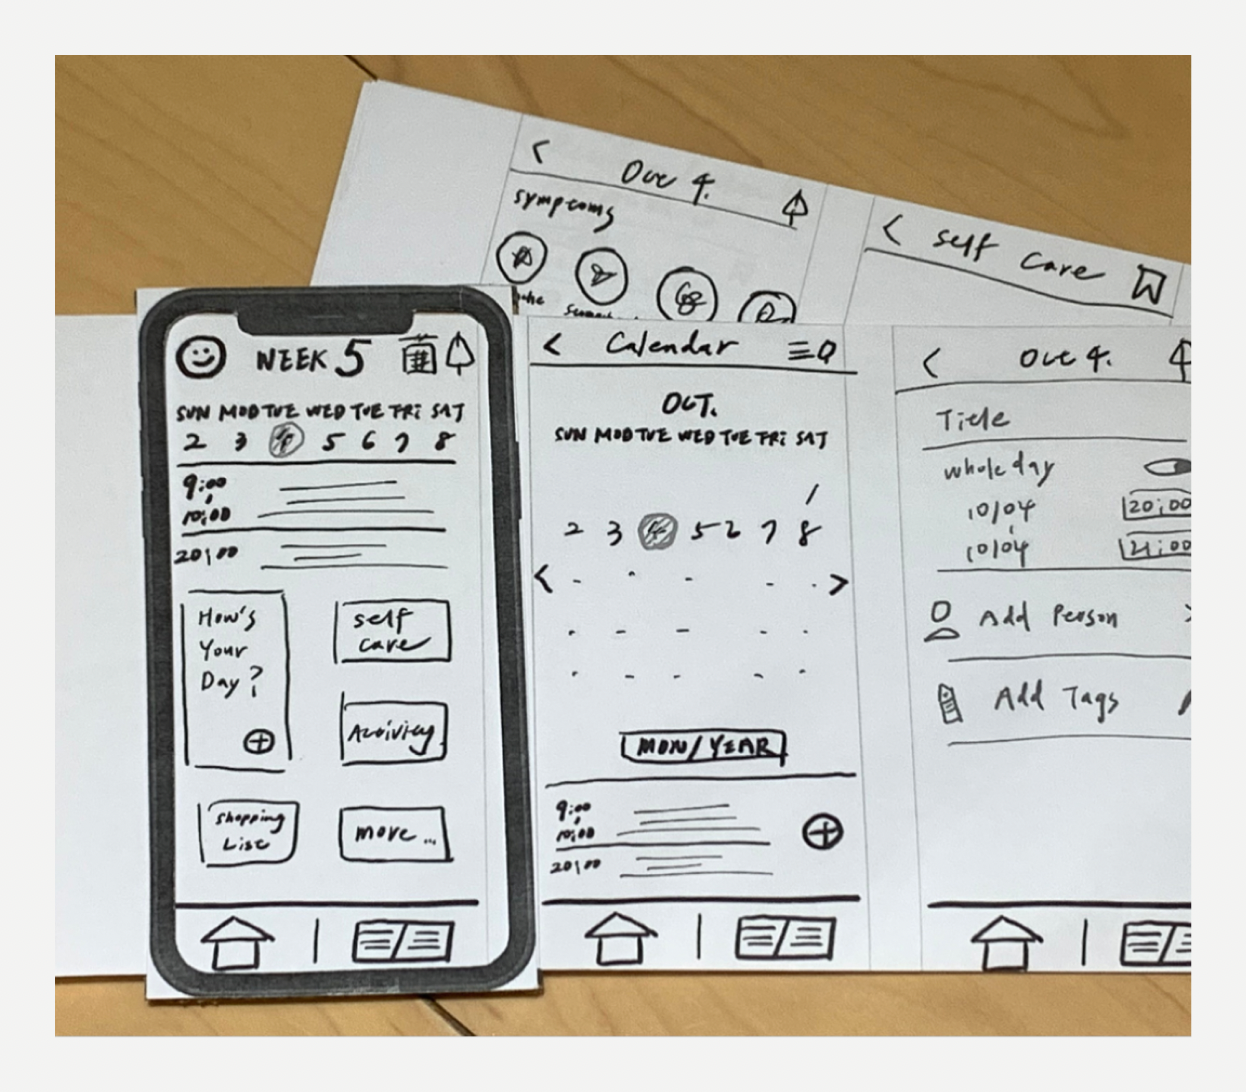 < Oct 4.
symptoms
< self care
WEEK 5
SUN MOD TUE WED TUE FRI SAT
2 3 4 5 6 7 8
9:00
10:00
20:00
How's
Your
Day?
self
care
Activity
shopping
List
more...
< Calendar
OCT.
SUN MOD TUE WED TUE FRI SAT
1
2 3 4 5 2 7 8
< >
MON/YEAR
9:00
10:00
20:00
< Oct 4.
Title
whole day
10/04 20:00
10/04 21:00
Add Person >
Add Tags